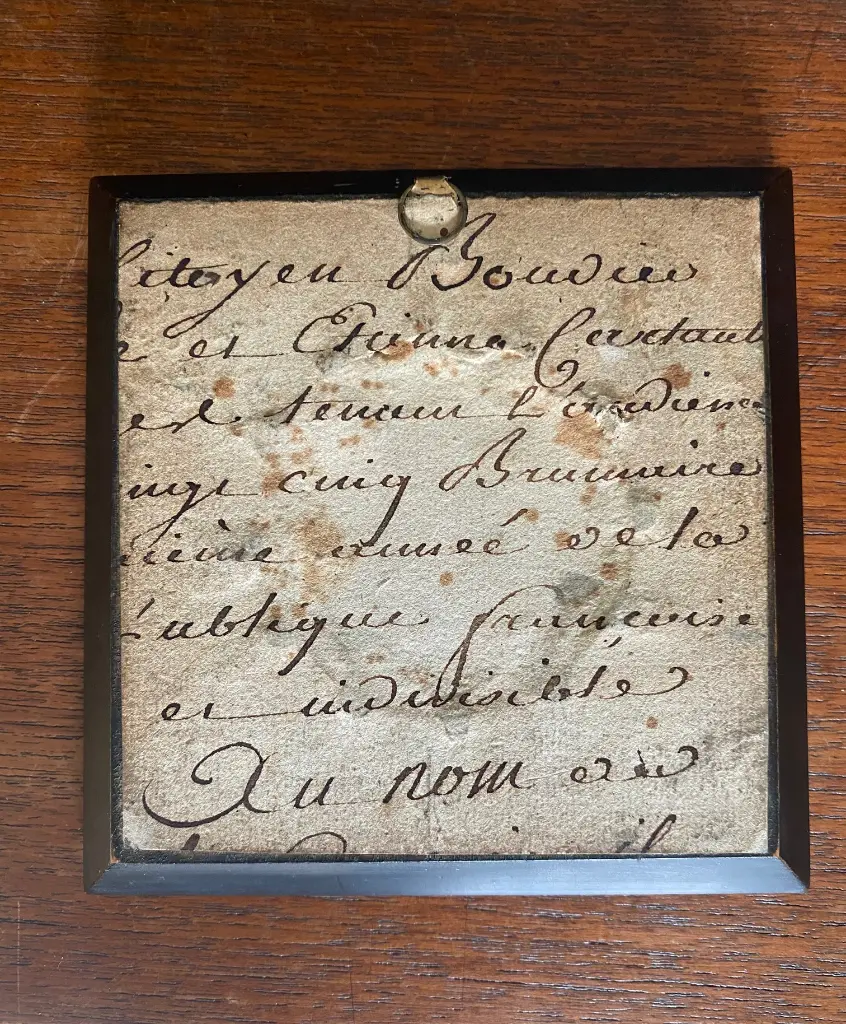 Citoyen Boudier
et Etienne Cartault
tenant L'audience
ingt cinq Brumaire
ieme année de la
publique françoise
et indivisible
Au nom du